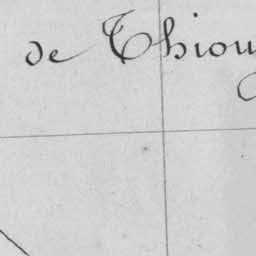 de Thiou